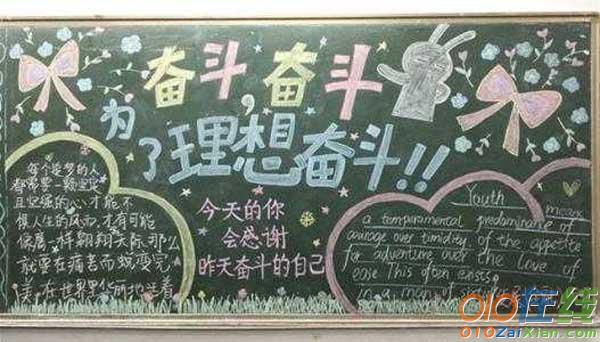 奋斗,奋斗
为了理想奋斗!!
每个梦的人
都需要一颗坚定
且坚强的心才能不
惧人生的风雨,才有可能
像鹰一样翱翔天际,那么
就要在痛苦而蜕变完
美,在世界里华丽地活着
今天的你
会感谢
昨天奋斗的自己
Youth means
a temperamental predominance of
courage over timidity, of the appetite
for adventure over the love of
ease This often exists
in a man of
010在线
010ZaiXian.com